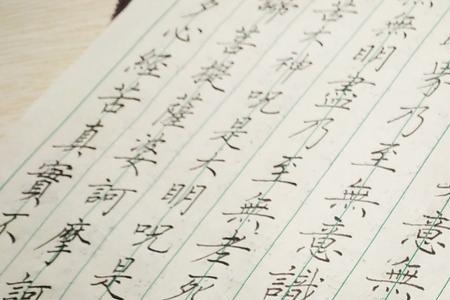 意無
界乃至無意識
無明盡乃至無老死
苦大神咒是大明咒是
菩提薩婆訶摩訶
心經苦真實不